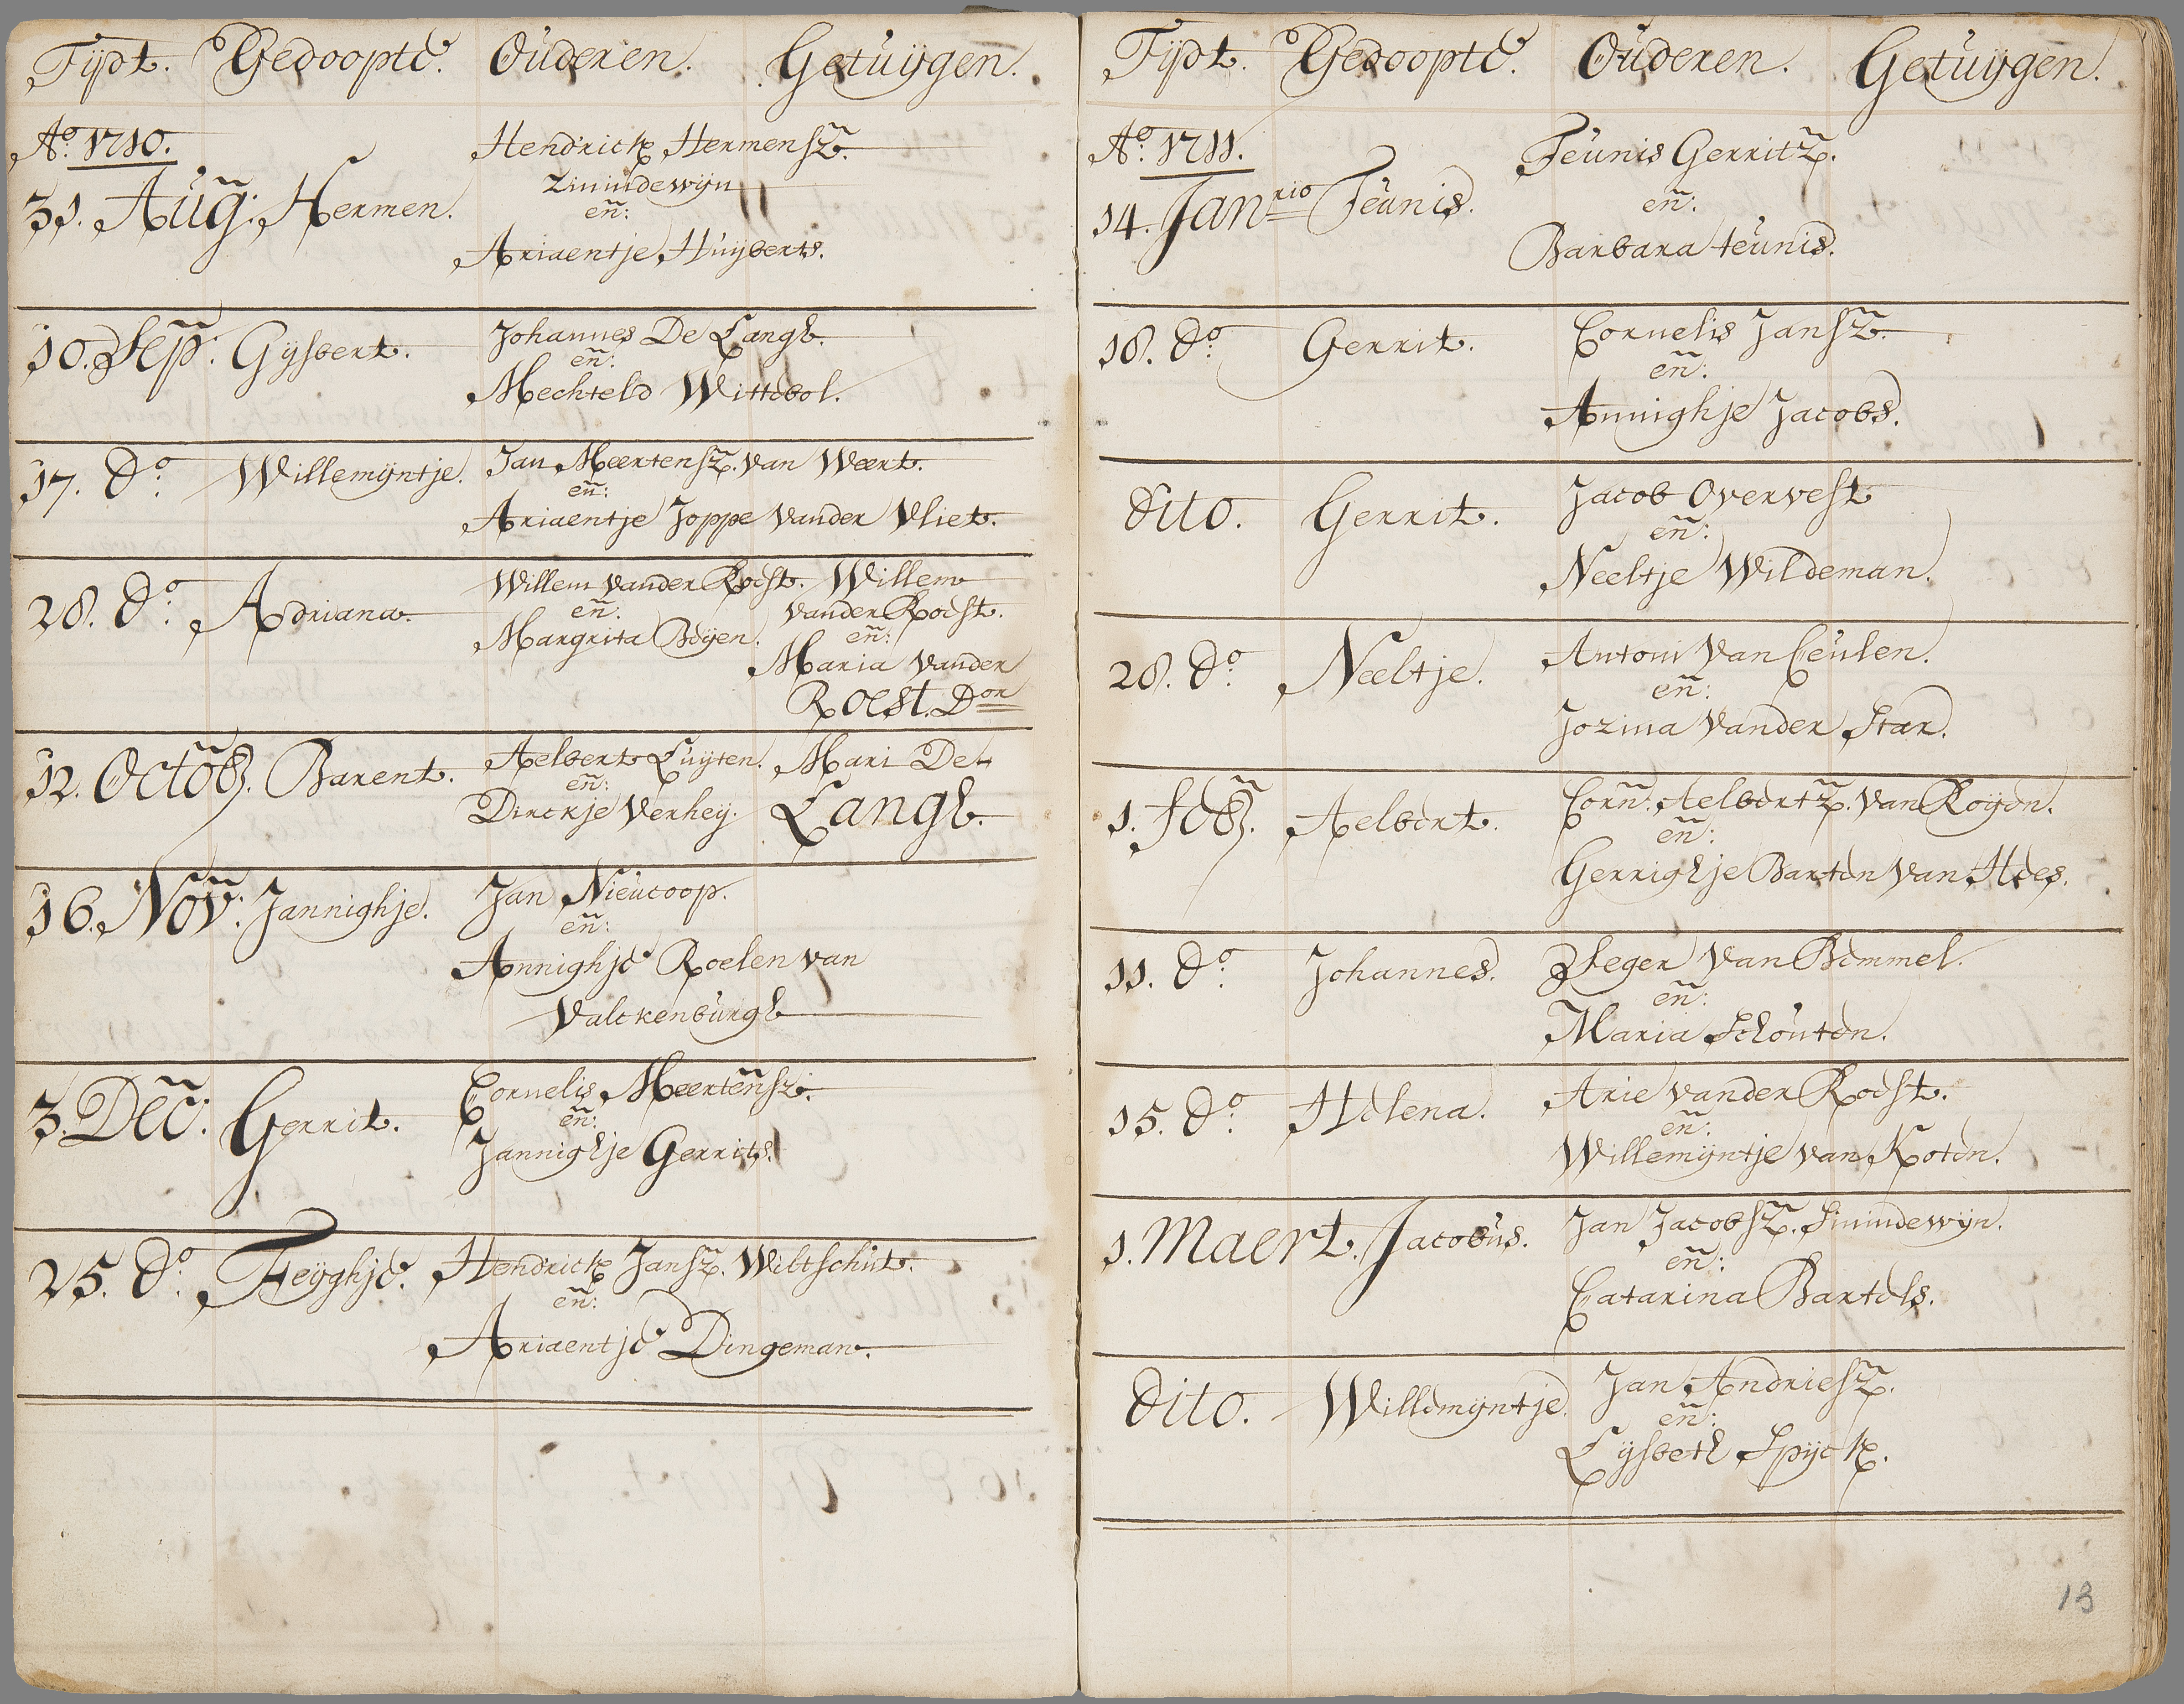 Tijdt. Gedoopte. Ouderen. Getuijgen.
Ao. 1710.
31. Aug: Hermen. Hendrick Hermensz.
Zuiindewijn
en:
Ariaentje Huijberts.
10. Sep: Gijsbert. Johannes De Langh.
en:
Mechteld Wittebol.
17. do: Willemijntje. Jan Meertensz. van Weert.
en:
Ariaentje Joppe vander Vliet.
28. do: Adriana. Willem vander Roest. Willem
en: vander Roest.
Margrita Boijen. en:
Maria vander
Roest. Don
12. Octob. Barent. Aelbert Luijten. Mari De
en:
Dirckje Verheij. Langh.
16. Nov: Jannighje. Jan Nieucoop.
en:
Annighje Roelen van
Valckenburgh
3. Dec: Gerrit. Cornelis Meertensz.
en:
Jannighje Gerrits.
25. do: Feijghje. Hendrick Jansz. Wiltschut.
en:
Ariaentje Dingeman.
Tijdt. Gedoopte. Ouderen. Getuijgen.
Ao. 1711.
14. Janrio Teunis. Teunis Gerritz.
en:
Barbara teunis.
18. do: Gerrit. Cornelis Jansz.
en:
Annighje Jacobs.
dito. Gerrit. Jacob Overvest
en:
Neeltje Wildeman.
28. do: Neeltje. Antoni van Ceulen.
en:
Jozina vander Star.
1. feb. Aelbert. Corn: Aelbertz. van Roijen.
en:
Gerrighje Barten van Hees.
11. do: Johannes. Zseger van Bemmel.
en:
Maria Schouten.
15. do: Helena. Arie vander Roest.
en:
Willemijntje van Koten.
1. Maert. Jacobus. Jan Jacobsz. Suiindewijn.
en:
Catarina Bartels.
dito. Willemijntje. Jan Andriesz.
en:
Lijsbeth Spijck.
13